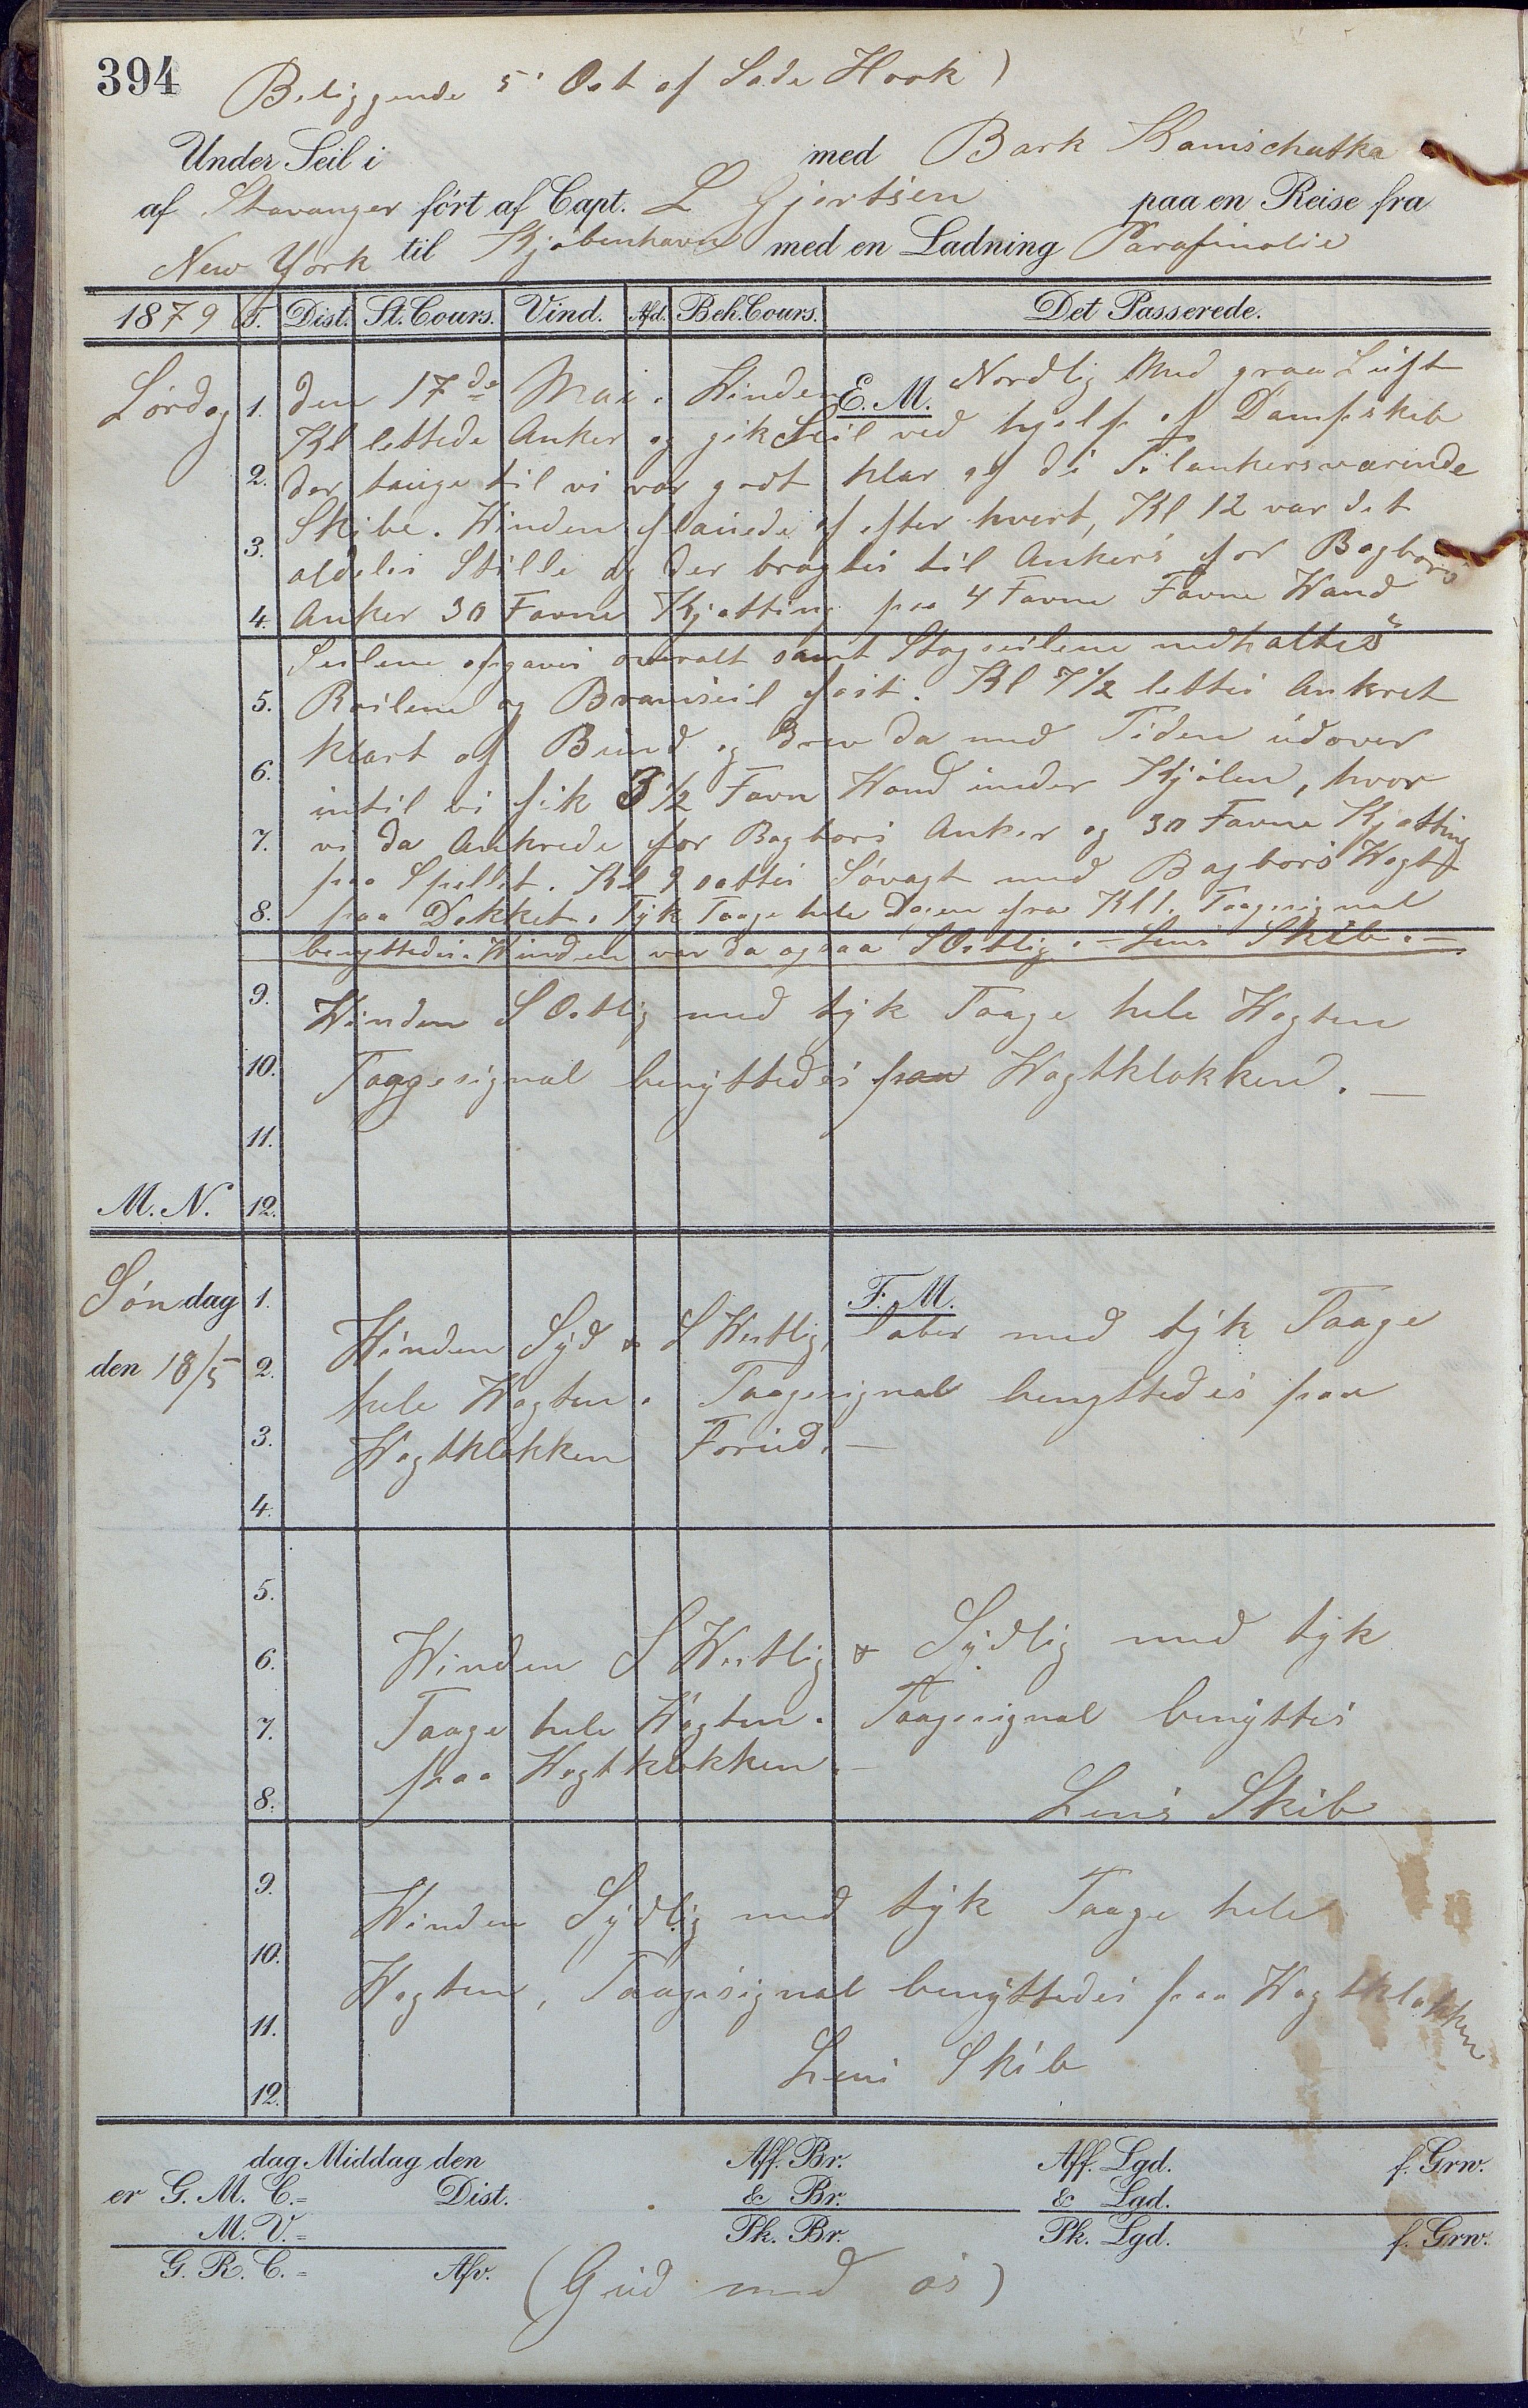 394
Beliggende 5' Ost af Sade Hook)
Under Seil i med Bark Kamschatka
af Stavanger fört af Capt. L Gjertsen paa en Reise fra
New York til Kjöbenhavn med en Ladning Parafinolie
1879 T. Dist. St. Cours. Vind. Afd. Beh. Cours. Det Passerede.
E. M.
Lördag 1. den 17de Mai. Winden Nordlig Med graa Luft
Kl lettede Anker og gik Seil ved hjelp af Dampskib
2. der til vi var godt klar af de Tilankersværende
Skibe. Winden flauede af efter hvert, Kl 12 var det
3. aldeles Stille og der bragtes til Ankers for Bagbors
4. Anker 30 Favne Kjætting paa 4 Favne Favne Wand
Seilene opgaves overalt samt Stagseilene nedhaltes
5. Röilene og Bramseil fast. Kl 7 1/2 lettes Ankret
klart af Bund og drev da med Tiden udover
6. intil vi fik 3 1/2 Favn Wand under Kjölen, hvor
7. vi da Ankrede for Bagbors Anker og 30 Favne Kjætting
paa Spillet. Kl 9 sattes Sövagt med Bagbors Wagt
8. paa Dekket. Tyk Taage hele Dagen fra Kl 1. Taagesignal
benyttedes. Winden var da ogsaa SOstlig. - Lens Skib. -
9. Winden SOstlig med tyk Taage hele Wagten
10. Taagesignal benyttedes paa Wagtklokken. -
11.
M. N. 12.
F. M.
Söndag 1. Winden Syd & SWestlig, laber med tyk Taage
den 18/5 2. hele Wagten. Taagesignal benyttedes paa
3. Wagtklokken Forud. -
4.
5.
6. Winden SWestlig & Sydlig med tyk
7. Taage hele Wagten. Taagesignal benyttes
paa Wagtklokken. -
8. Lens Skib
9. Winden Sydlig med tyk Taage hele
10. Wagten, Taagesignal benyttedes paa Wagtklokken
11.
Lens Skib
12.
dag Middag den Aff. Br. Aff. Lgd. f. Grw.
er G. M. C.= Dist. & Br. & Lgd.
M. V.= Pk. Br. Pk. Lgd. f. Grw.
G. R. C.= Afv.
(Gud med os)